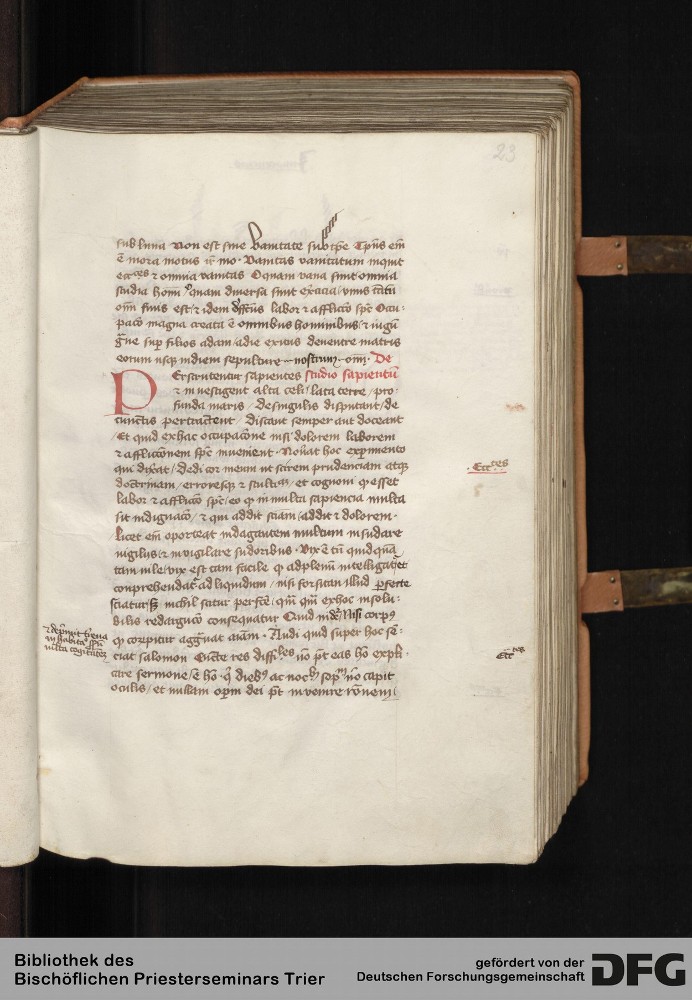 23
sub luna Non est sine vanitate sub tpe Tpus em
ē mora motus Vanitas vanitatum inquit
ecctes ⁊ omnia vanitas O quam vana sunt omnia
studia hoim quam diversa sunt
oim finis est / ⁊ idem labor ⁊ afflictō spc Occu-
pacō magna creata ē omnibus hominibus / ⁊ iugū
gue sup filios adam / a die exitus de ventre matris
eorum usq in diem sepulture nostrum oim De
studio sapientiū
PErscrutentur sapientes
⁊ investigent alta celi / lata terre / pro-
funda maris / de singulis disputant / de
cunctis pertractent / Discant semper aut doceant
Et quid ex hac occupacōne nisi dolorem laborem
⁊ afflicconem spc invenient Noverat hoc experimento
qui dixerat / Dedi cor meum ut scirem prudenciam atq
doctrinam / erroresq ⁊ stulta / et cognovi q esset
labor ⁊ afflictō spc / eo q in multa sapiencia multa
sit indignacō / ⁊ qui addit sciam / addit ⁊ dolorem
Licet em oporteat indagantem multum insudare
vigiliis / ⁊ invigilare sudoribus Vix ē tn quid qua
tam vile / vix est tam facile q ad plenum intelligat / et
comprehendat ad liquidum / nisi forsitan illud perfecte
sciatur / q nichil scitur perfcē / qm qm ex hoc insolu-
bilis redargucō consequatur Quid Nisi corpus
q corrumpitur aggravat aiam Audi quid super hoc sē-
ciat salomon Cuncte res difficiles nō pt eas hō expli-
care sermone / ē hō q diebus ac noctibus sopm nō capit
oculis / et nullam operum dei pt invenire rōnem
Eccctes
⁊ deprimit terrena
inhabitacō sensum
multa cogitantem
Ecctes
Bibliothek des
Bischöflichen Priesterseminars Trier
gefördert von der
Deutschen Forschungsgemeinschaft
DFG